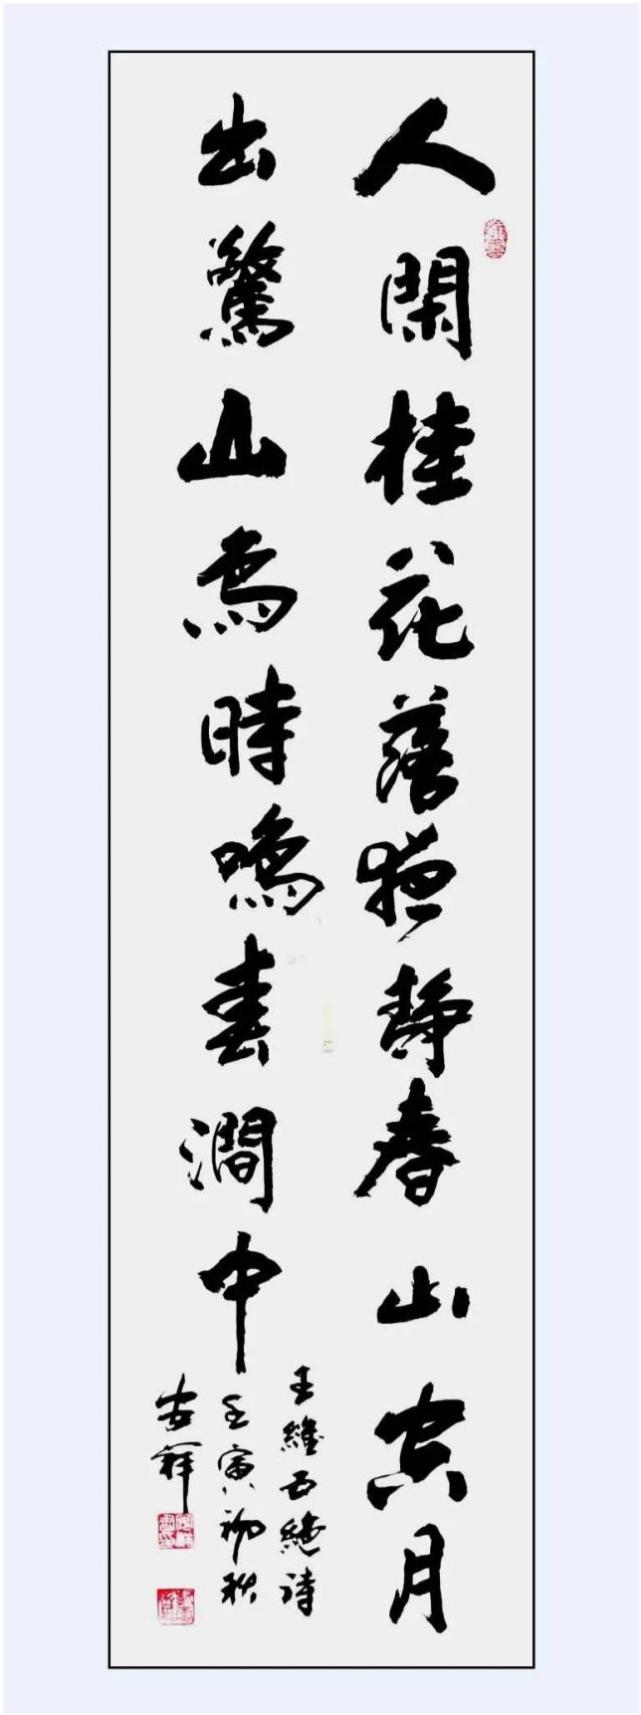 人閑桂花落夜静春山空月
出驚山鳥時鳴春澗中
王維五絶詩
壬寅初秋
祥